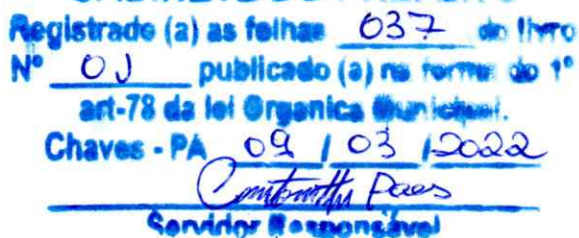 GABINETE DO PREFEITO
Registrado (a) as folhas 037 do livro
Nº 01 publicado (a) na forma do 1º
art-78 da lei Organica Municipal.
Chaves - PA 09 / 03 / 2022
Paes
Servidor Responsável